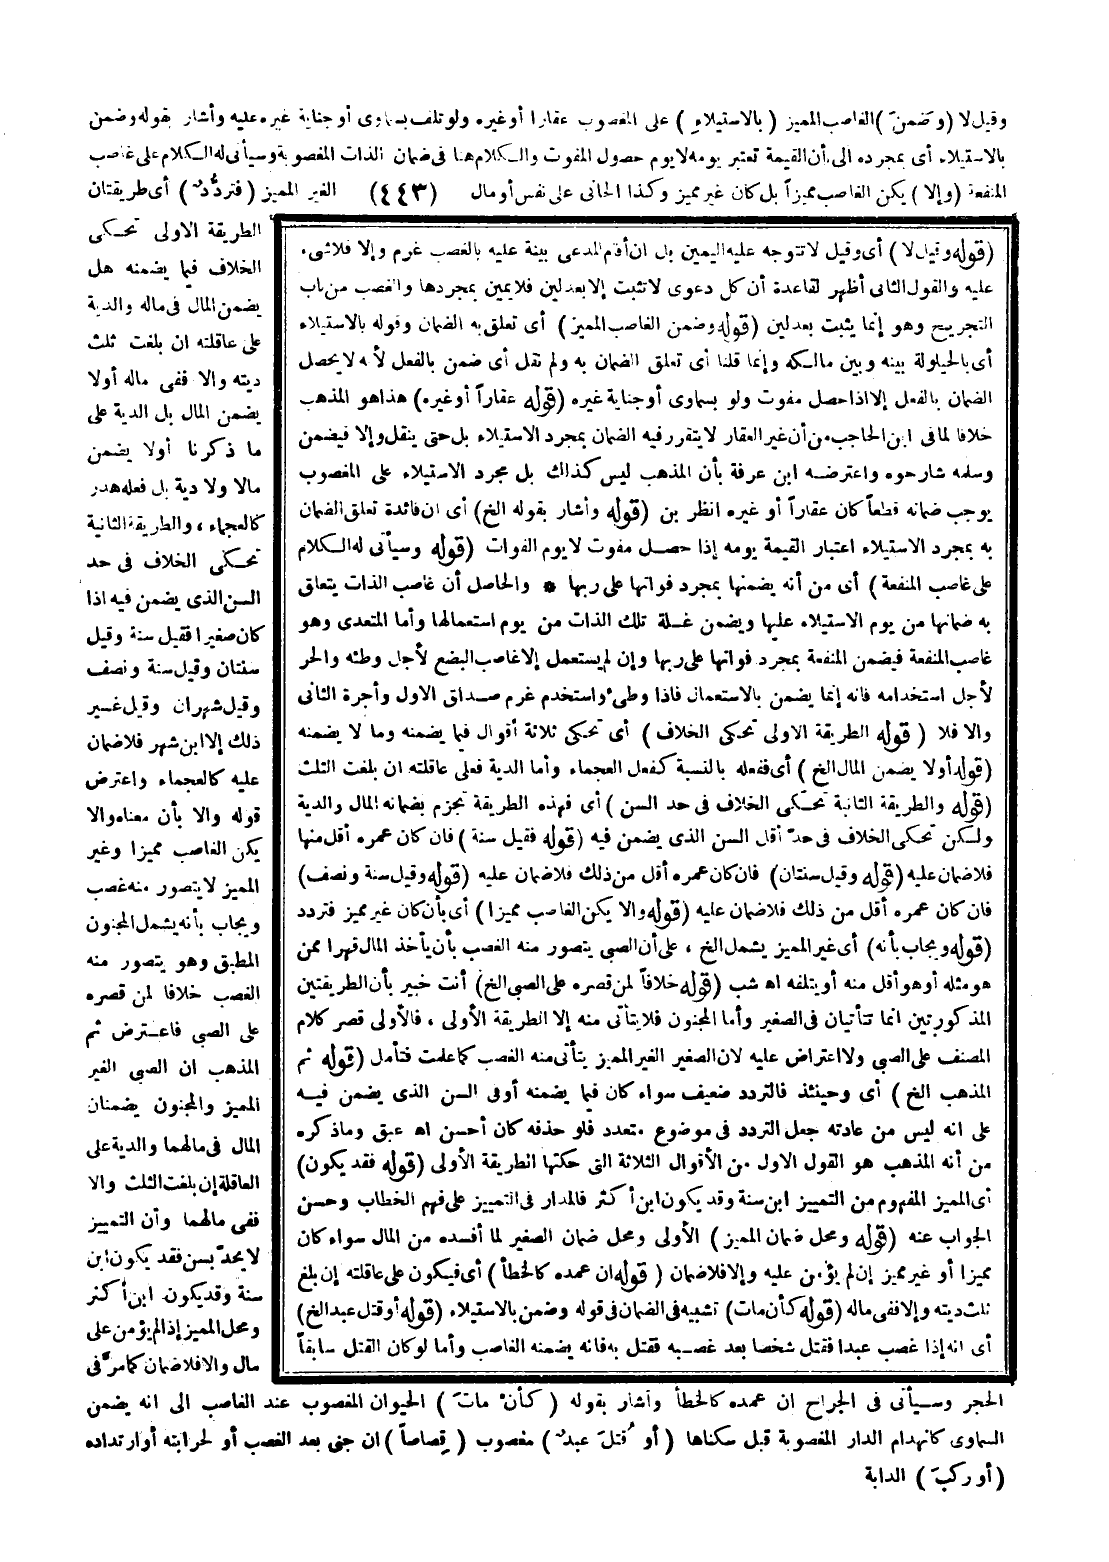 وقيل لا (وضمن) الغاصب المميز (بالاستيلاء) على المغصوب عقارا أو غيره ولو تلف بسماوى أو جناية غيره عليه وأشار بقوله وضمن
بالاستيلاء أى بمجرده الى أن القيمة تعتبر يومه لا يوم حصول المفوت والكلام هنا فى ضمان الذات المغصوبة وسيأتى له الكلام على غاصب
المنفعة (وإلا) يكن الغاصب مميزاً بل كان غير مميز وكذا الجانى على نفس أو مال (٤٤٣) الغير المميز (فتردد) أى طريقتان
الطريقة الاولى تحكى
الخلاف فيما يضمنه هل
يضمن المال فى ماله والدية
على عاقلته ان بلغت ثلث
ديته والا ففى ماله أولا
يضمن المال بل الدية على
ما ذكرنا أولا يضمن
مالا ولا دية بل فعله هدر
كالعجماء ، والطريقة الثانية
تحكى الخلاف فى حد
السن الذى يضمن فيه اذا
كان صغيرا فقيل سنة وقيل
سنتان وقيل سنة ونصف
وقيل شهران وقيل غير
ذلك إلا ابن شهر فلا ضمان
عليه كالعجماء واعترض
قوله والا بأن معناه والا
يكن الغاصب مميزا وغير
المميز لا يتصور منه غصب
ويجاب بأنه يشمل المجنون
المطبق وهو يتصور منه
الغصب خلافا لمن قصره
على الصبى فاعترض ثم
المذهب ان الصبى الغير
المميز والمجنون يضمنان
المال فى مالهما والدية على
العاقلة إن بلغت الثلث والا
ففى مالهما وأن التمييز
لا يحد بسن فقد يكون ابن
سنة وقد يكون ابن أكثر
ومحل المميز إذا لم يؤمن على
مال والا فلا ضمان كما مر فى
(قوله وقيل لا) أى وقيل لا تتوجه عليه اليمين بل ان أقام المدعى بينة عليه بالغصب غرم وإلا فلا شىء
عليه والقول الثانى أظهر لقاعدة أن كل دعوى لا تثبت إلا بعدلين فلا يمين بمجردها والغصب من باب
التجريح وهو إنما يثبت بعدلين (قوله وضمن الغاصب المميز) أى تعلق به الضمان وقوله بالاستيلاء
أى بالحيلولة بينه وبين مالكه وإنما قلنا أى تعلق الضمان به ولم نقل أى ضمن بالفعل لأنه لا يحصل
الضمان بالفعل إلا اذا حصل مفوت ولو بسماوى أو جناية غيره (قوله عقاراً أو غيره) هذا هو المذهب
خلافا لما فى ابن الحاجب من أن غير العقار لا يتقرر فيه الضمان بمجرد الاستيلاء بل حتى ينقل وإلا فيضمن
وسلمه شارحوه واعترضه ابن عرفة بأن المذهب ليس كذلك بل مجرد الاستيلاء على المغصوب
يوجب ضمانه قطعاً كان عقاراً أو غيره انظر بن (قوله وأشار بقوله الخ) أى ان فائدة تعلق الضمان
به بمجرد الاستيلاء اعتبار القيمة يومه إذا حصل مفوت لا يوم الفوات (قوله وسيأتى له الكلام
على غاصب المنفعة) أى من أنه يضمنها بمجرد فواتها على ربها * والحاصل أن غاصب الذات يتعلق
به ضمانها من يوم الاستيلاء عليها ويضمن غلة تلك الذات من يوم استعمالها وأما المتعدى وهو
غاصب المنفعة فيضمن المنفعة بمجرد فواتها على ربها وإن لم يستعمل إلا غاصب البضع لأجل وطئه والحر
لأجل استخدامه فانه إنما يضمن بالاستعمال فاذا وطئ واستخدم غرم صداق الاول وأجرة الثانى
والا فلا (قوله الطريقة الاولى تحكى الخلاف) أى تحكى ثلاثة أقوال فيما يضمنه وما لا يضمنه
(قوله أولا يضمن المال الخ) أى ففعله بالنسبة كفعل العجماء وأما الدية فعلى عاقلته ان بلغت الثلث
(قوله والطريقة الثانية تحكى الخلاف فى حد السن) أى فهذه الطريقة تجزم بضمانه المال والدية
ولكن تحكى الخلاف فى حد أقل السن الذى يضمن فيه (قوله فقيل سنة) فان كان عمره أقل منها
فلا ضمان عليه (قوله وقيل سنتان) فان كان عمره أقل من ذلك فلا ضمان عليه (قوله وقيل سنة ونصف)
فان كان عمره أقل من ذلك فلا ضمان عليه (قوله والا يكن الغاصب مميزا) أى بأن كان غير مميز فتردد
(قوله ويجاب بأنه) أى غير المميز يشمل الخ ، على أن الصبى يتصور منه الغصب بأن يأخذ المال قهرا ممن
هو مثله أو هو أقل منه أو يتلفه اه شب (قوله خلافاً لمن قصره على الصبى الخ) أنت خبير بأن الطريقتين
المذكورتين انما تتأتيان فى الصغير وأما المجنون فلا يتأتى منه إلا الطريقة الأولى ، فالأولى قصر كلام
المصنف على الصبى ولا اعتراض عليه لان الصغير الغير المميز يتأتى منه الغصب كما علمت فتأمل (قوله ثم
المذهب الخ) أى وحينئذ فالتردد ضعيف سواء كان فيما يضمنه أو فى السن الذى يضمن فيه
على انه ليس من عادته جعل التردد فى موضوع متعدد فلو حذفه كان أحسن اه عبق وما ذكره
من أنه المذهب هو القول الاول من الأقوال الثلاثة التى حكتها الطريقة الأولى (قوله فقد يكون)
أى المميز المفهوم من التمييز ابن سنة وقد يكون ابن أكثر فالمدار فى التمييز على فهم الخطاب وحسن
الجواب عنه (قوله ومحل ضمان المميز) الأولى ومحل ضمان الصغير لما أفسده من المال سواء كان
مميزا أو غير مميز إن لم يؤمن عليه وإلا فلا ضمان (قوله ان عمده كالخطأ) أى فيكون على عاقلته إن بلغ
ثلث ديته وإلا ففى ماله (قوله كأن مات) تشبيه فى الضمان فى قوله وضمن بالاستيلاء (قوله أو قتل عبد الخ)
أى انه إذا غصب عبدا فقتل شخصا بعد غصبه فقتل به فانه يضمنه الغاصب وأما لو كان القتل سابقاً
الحجر وسيأتى فى الجراح ان عمده كالخطأ وأشار بقوله (كأن مات) الحيوان المغصوب عند الغاصب الى انه يضمن
السماوى كانهدام الدار المغصوبة قبل سكناها (أو قتل عبد) مغصوب (قصاصاً) ان جنى بعد الغصب أو لحرابته أو ارتداده
(أو ركب) الدابة